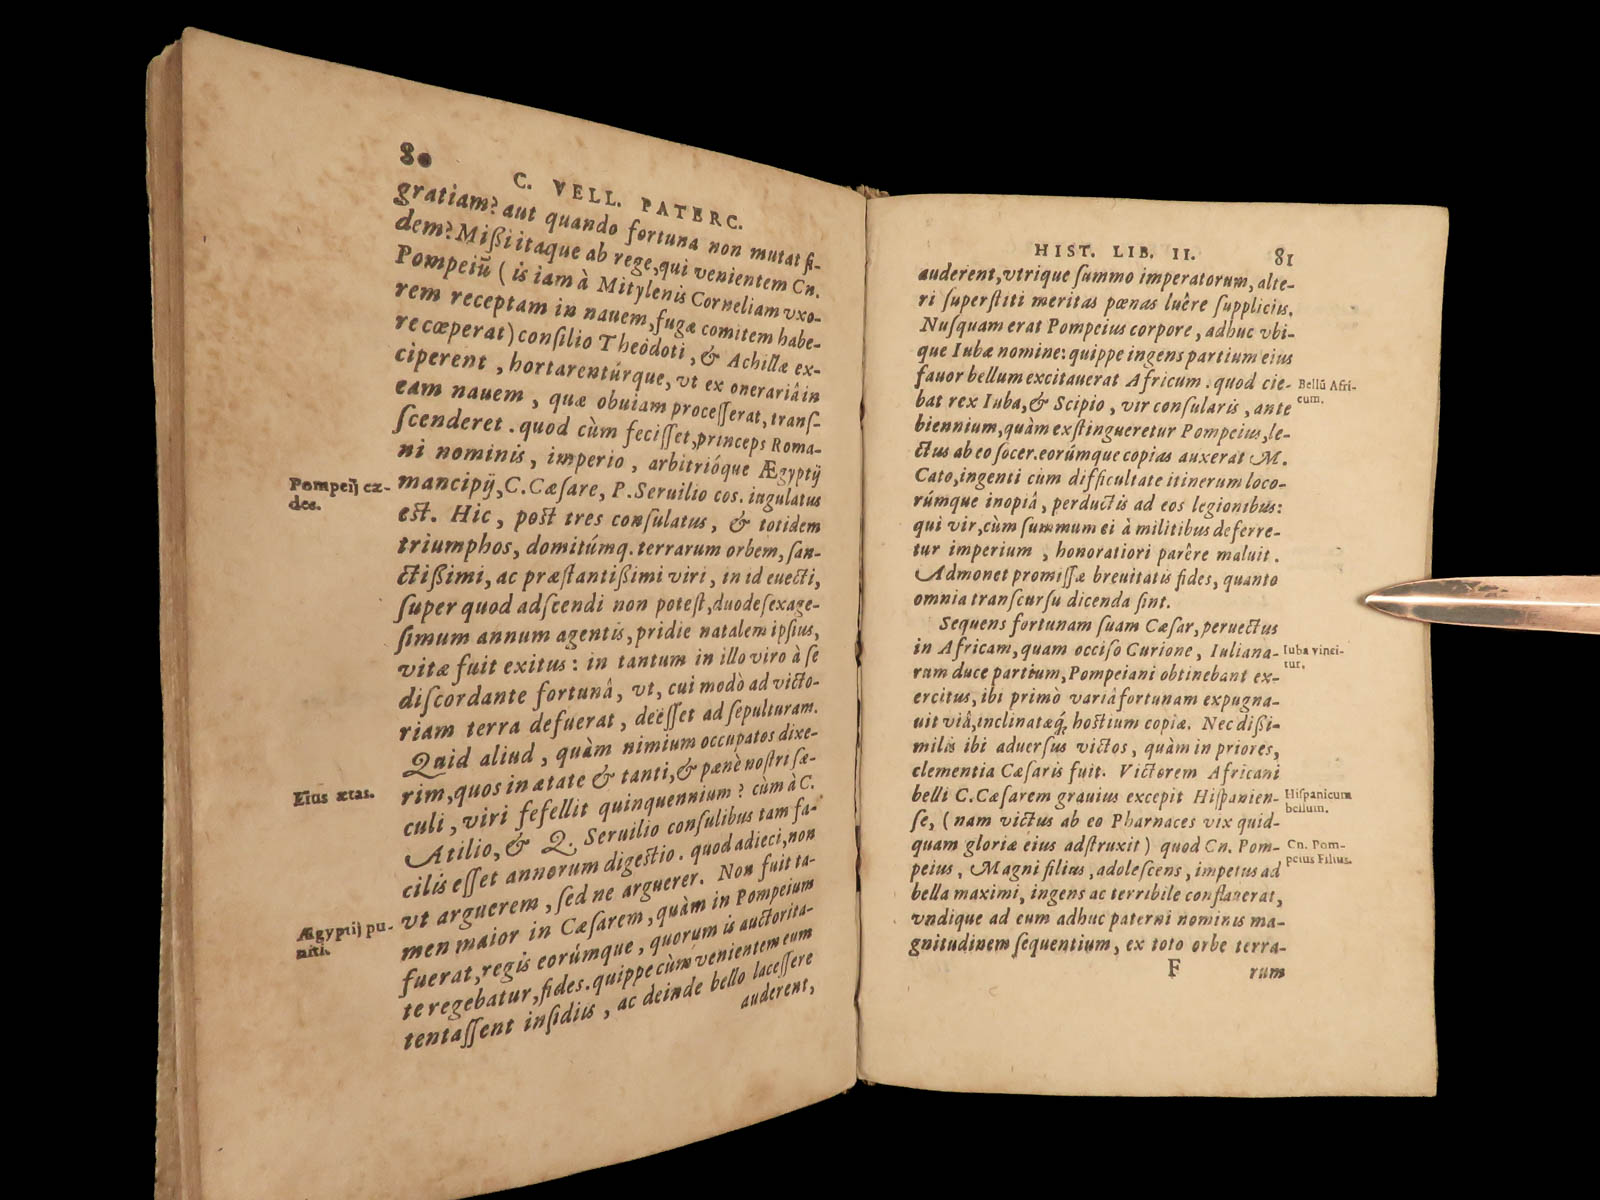 80
C. VELL. PATERC.
gratiam? aut quando fortuna non mutat fi-
dem? Mißi itaque ab rege, qui venientem Cn.
Pompeiũ (is iam à Mitylenis Corneliam vxo-
rem receptam in nauem, fugæ comitem habe-
re cœperat) conſilio Theodoti, & Achillæ ex-
ciperent, hortarentúrque, vt ex onerariâ in
eam nauem, quæ obuiam proceſſerat, tranſ-
ſcenderet. quod cùm feciſſet, princeps Roma-
ni nominis, imperio, arbitrióque Ægyptij
mancipij, C. Cæſare, P. Seruilio cos. iugulatus
est. Hic, post tres conſulatus, & totidem
triumphos, domitúmq. terrarum orbem, ſan-
ctißimi, ac præſtantißimi viri, in id euecti,
ſuper quod adſcendi non poteſt, duodeſexage-
ſimum annum agentis, pridie natalem ipſius,
vitæ fuit exitus: in tantum in illo viro à ſe
diſcordante fortunâ, vt, cui modò ad victo-
riam terra defuerat, deëſſet ad ſepulturam.
Quid aliud, quàm nimium occupatos dixe-
rim, quos in ætate & tanti, & pænè noſtri ſæ-
culi, viri fefellit quinquennium? cùm à C.
Atilio, & Q. Seruilio conſulibus tam fa-
cilis eſſet annorum digeſtio. quod adieci, non
vt arguerem, ſed ne arguerer. Non fuit ta-
men maior in Cæſarem, quàm in Pompeium
fuerat, regis eorúmque, quorum is auctorita-
te regebatur, fides. quippe cùm venientem eum
tentaſſent inſidiis, ac deinde bello laceſſere
auderent,
Pompeij cæ-
des.
Eius ætas.
Ægyptij pu-
niti.
HIST. LIB. II. 81
auderent, vtrique ſummo imperatorum, alte-
ri ſuperſtiti meritas pœnas luêre ſuppliciis.
Nuſquam erat Pompeius corpore, adhuc vbi-
que Iubæ nomine: quippe ingens partium eius
fauor bellum excitauerat Africum. quod cie-
bat rex Iuba, & Scipio, vir conſularis, ante
biennium, quàm exſtingueretur Pompeius, le-
ctus ab eo ſocer. eorúmque copias auxerat M.
Cato, ingenti cùm difficultate itinerum loco-
rúmque inopiâ, perductis ad eos legionibus:
qui vir, cùm ſummum ei à militibus deferre-
tur imperium, honoratiori parêre maluit.
Admonet promiſſæ breuitatis fides, quanto
omnia tranſcurſu dicenda ſint.
Sequens fortunam ſuam Cæſar, peruectus
in Africam, quam occiſo Curione, Iuliana-
rum duce partium, Pompeiani obtinebant ex-
ercitus, ibi primò variâ fortunam expugna-
uit viâ, inclinatæq́; hoſtium copiæ. Nec dißi-
milis ibi aduerſus victos, quàm in priores,
clementia Cæſaris fuit. Victorem Africani
belli C. Cæſarem grauius excepit Hiſpanien-
ſe, (nam victus ab eo Pharnaces vix quid-
quam gloriæ eius adſtruxit) quod Cn. Pom-
peius, Magni filius, adoleſcens, impetus ad
bella maximi, ingens ac terribile conflauerat,
vndique ad eum adhuc paterni nominis ma-
gnitudinem ſequentium, ex toto orbe terra-
F rum
Bellũ Afri-
cum.
Iuba vinci-
tur.
Hiſpanicum
bellum.
Cn. Pom-
peius Filius.